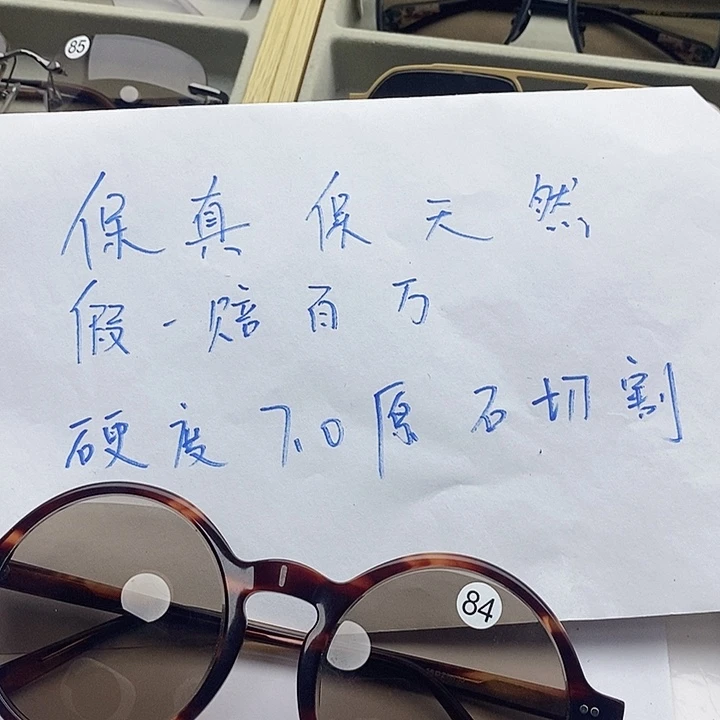 85
保真保天然
假一赔百万
硬度7.0原石切割
84